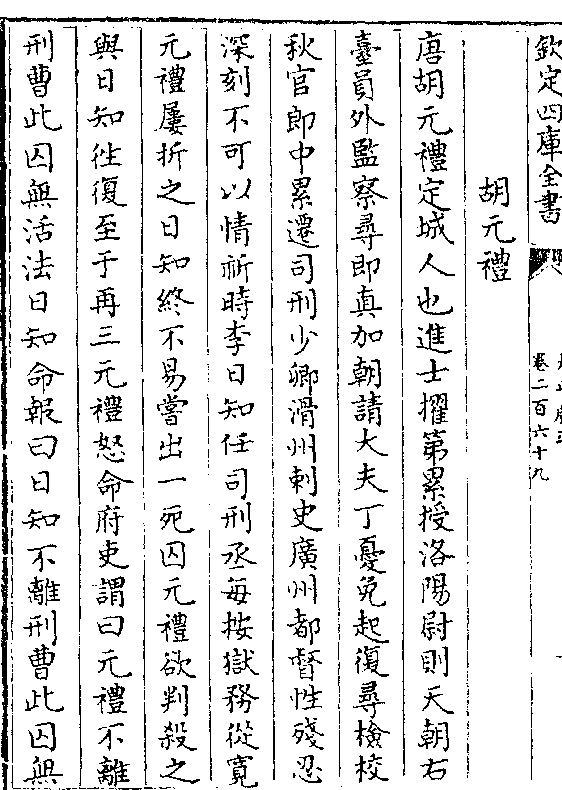 欽定四庫全書
卷二百六十九
胡元禮
唐胡元禮定城人也進士擢第累授洛陽尉則天朝右
臺員外監察尋即真加朝請大夫丁憂免起復尋檢校
秋官郎中累遷司刑少卿滑州刺史廣州都督性殘忍
深刻不可以情祈時李日知任司刑丞每按獄務從寬
元禮屢折之日知終不易嘗出一死囚元禮欲判殺之
與日知往復至于再三元禮怒命府吏謂曰元禮不離
刑曹此囚無活法日知命報曰日知不離刑曹此囚無